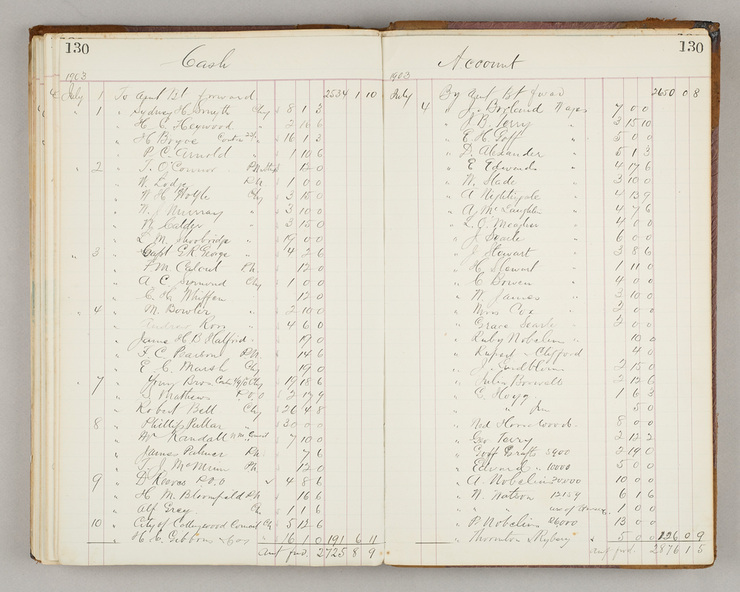 130
Cash
1903
July 1 To Amt Bt forward 2534 1 10
" 1 " Sydney H Smyth Chq 8 1 3
" H. C. Heywood " 2 16 6
" H Boyce " 16 1 3
" P. C. Arnold " 1 10 6
" 2 " T. O'Connor 12 0
" W. Lodge P.N. 1 0 0
" W H Wolfe Chq 3 15 0
" W. J. Murray " 3 10 0
" W. Calder " 3 15 0
" L. M. Shoobridge " 19 0 0
" 3 " Capt G. R. George " 4 2 6
" P.N. 12 0
" A C Chq 1 0 0
" C. H. Whiffen 12 0
" 4 " M. Bowler " 2 10 0
" Andrew Ross " 4 6 0
" James H B Halford " 19 0
" F. C. Pearson P.N. 14 6
" E. C. Marsh Chq 19 0
" 7 " Bros Chq 19 18 6
" Mathews P.O.O 2 17 9
" Robert Bell Chq 26 4 8
8 " Phillip Pallar " 30 0 0
" Mr Randall " 7 10 0
" James Palmer P.N. 7 6
" T. J. McMinn P.N. 12 0
9 " D Reeves P.O.O 4 8 6
" H. M. Bloomfield P.N. 16 6
" Alf Gray Ch 1 1 6
10 " City of Collingwood Council Ch 5 12 6
" H. C. Gibbons & Cos " 16 1 0 191 6 11
Amt fwd 2725 8 9
130
Account
1903
July By Amt bt fwd 2650 0 8
4 " J. Borland Wages 7 0 0
" J B Terry " 3 15 10
" E H Goff " 5 0 0
" J. Alexander " 5 1 3
" E Edwards " 4 17 6
" W. Slade " 3 10 0
" A Nightingale "
" A McLaughlin " 4 7 6
" L. C. Meagher " 4 0 0
" J Searle " 6 0 0
" J Stewart " 3 8 6
" H Stewart " 1 11 0
" C Bowen " 4 0 0
" W James " 3 10 0
" Miss Coe " 2 0 0
" Grace Searle " 2 0 0
" Ruby Nobelius " 10 0
" Rupert " Clifford 4 0
" J. " 2 15 0
" Jules Boswell 2 12 6
" C Hogg 1 6 3
" " Jun 5 0
" Ned Horne Wood 8 0 0
" Geo Terry 2 12 2
" Goff Grafts 5900 2 19 0
" Edwards " 10000 5 0 0
" A. Nobelius 6 0 0
" W. Watson 12159 6 1 6
" " use of 1 0 0
" P. Nobelius 26000 13 0 0
" Thornton 5 0 0 126 0 9
Amt fwd. 2876 1 5